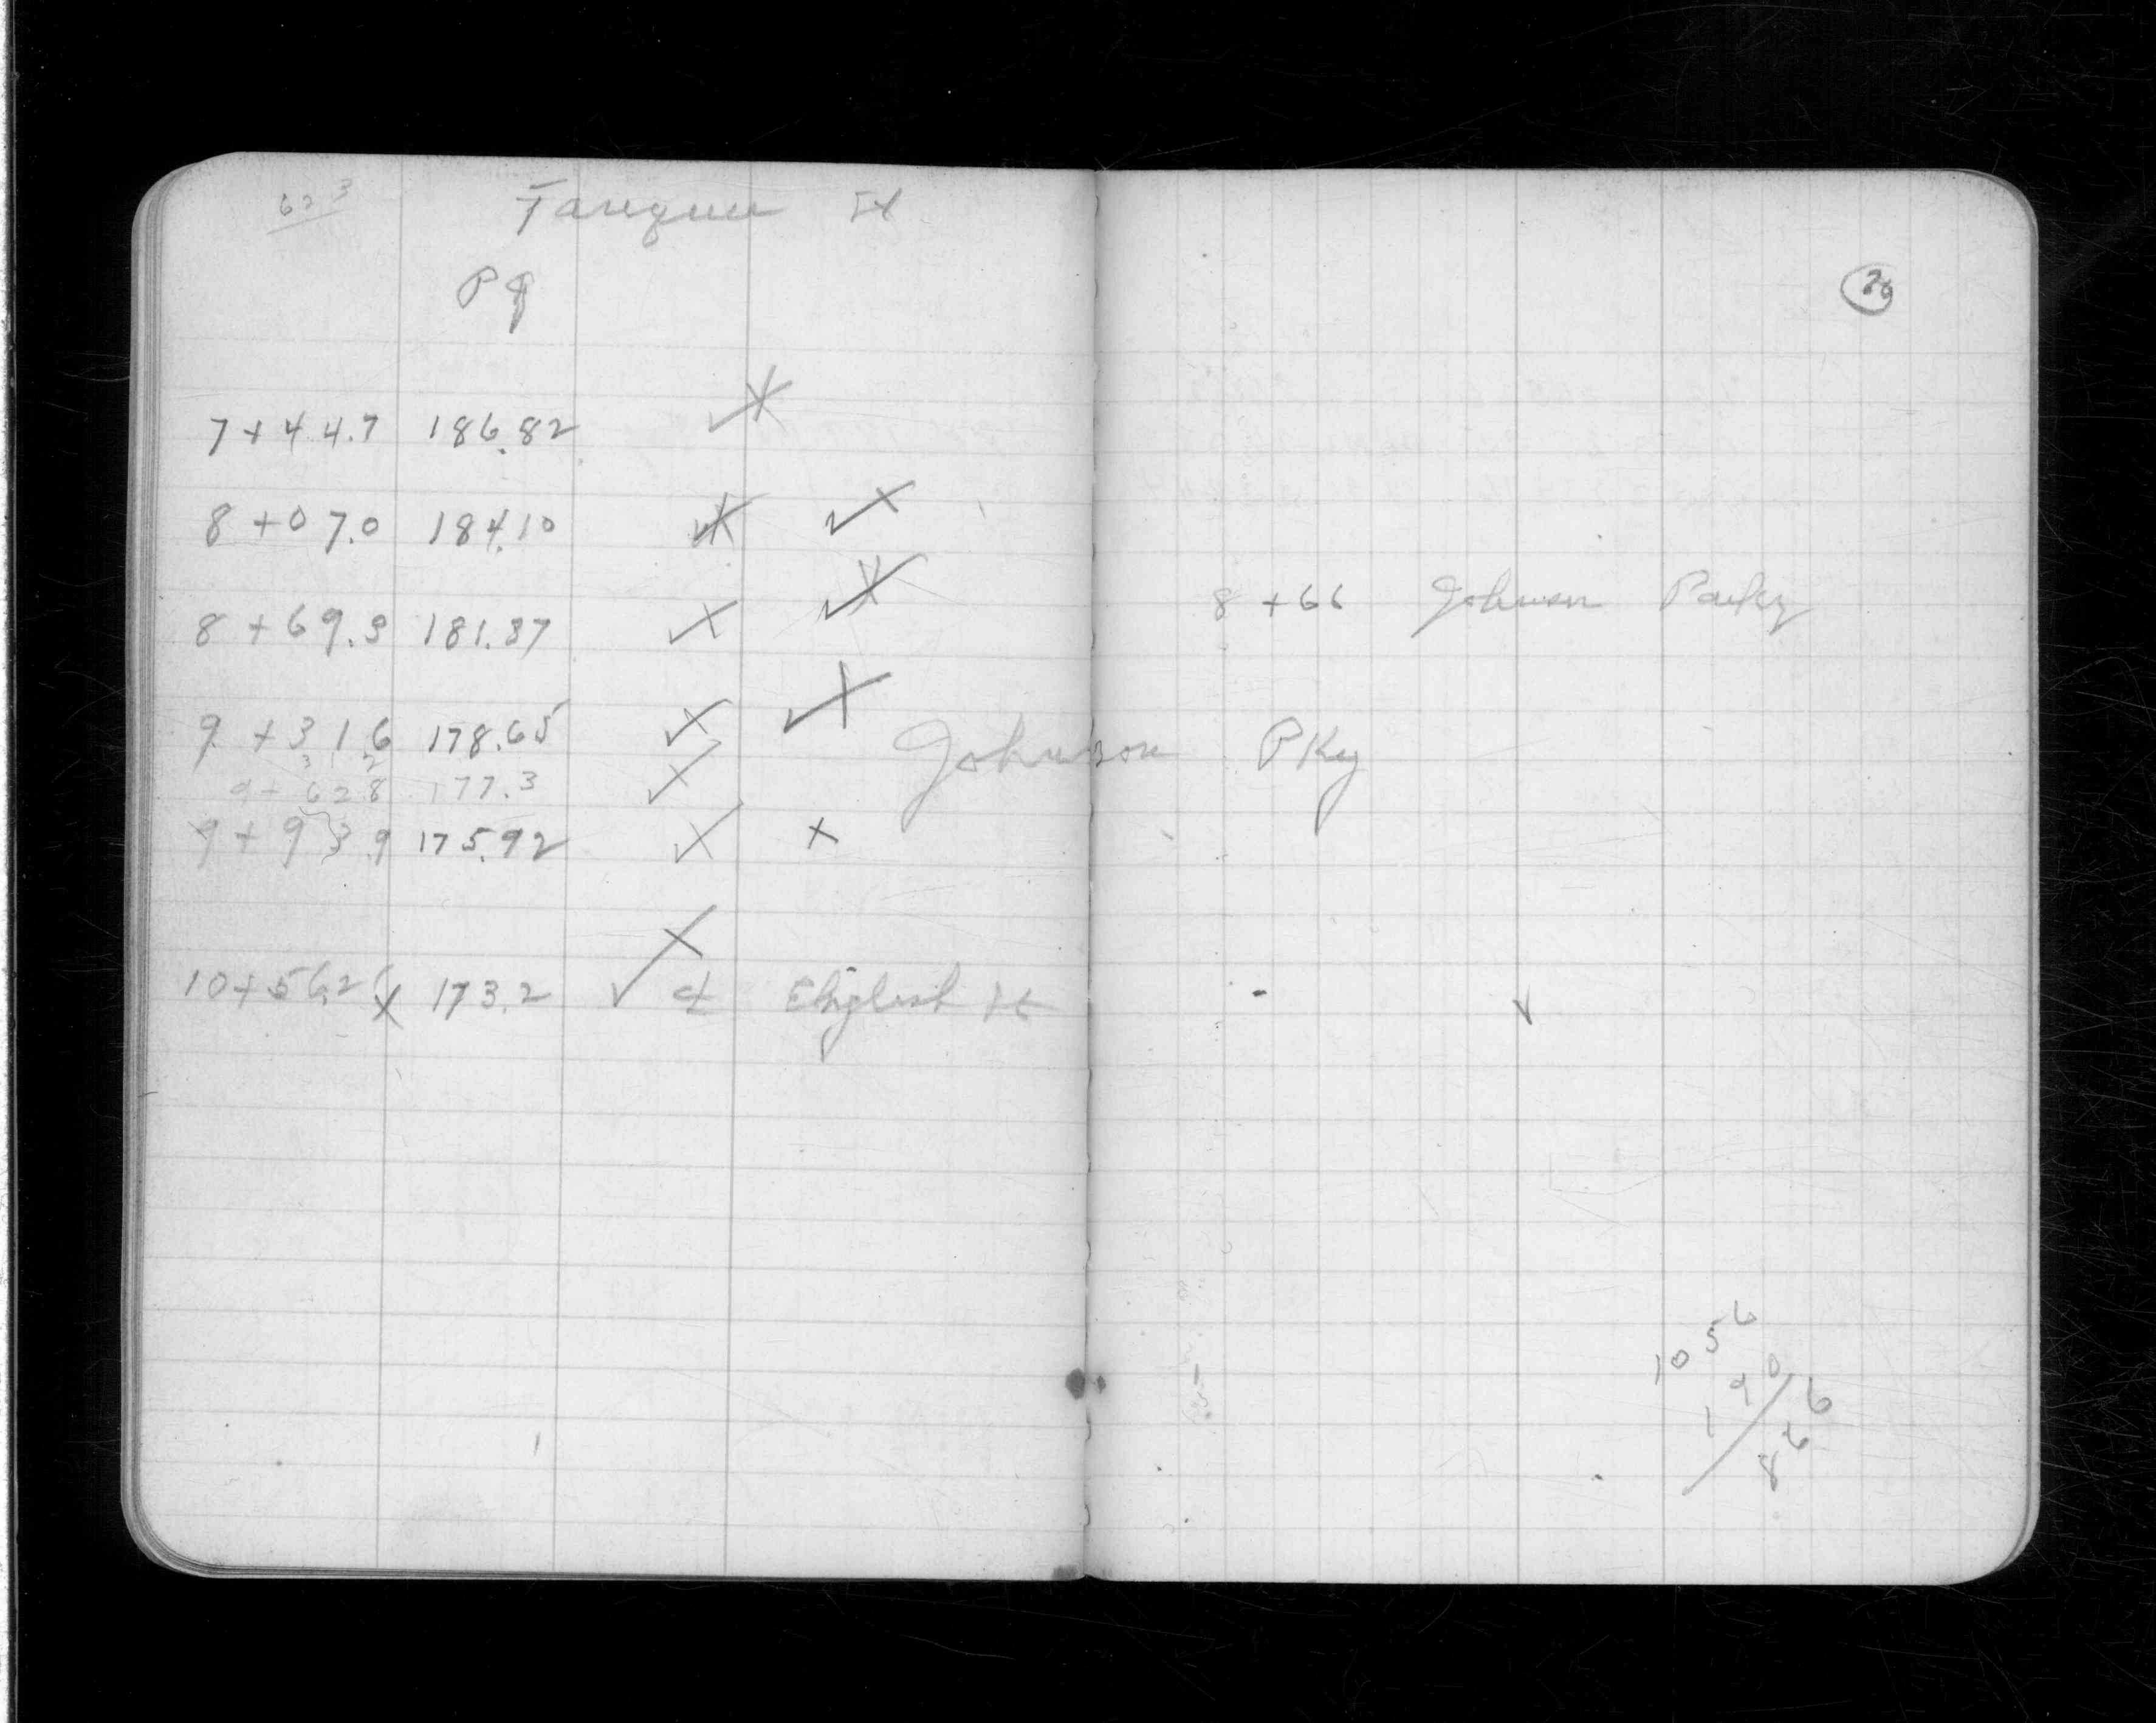 62 3
Farquer St
Pg
7+44.7 186.82
8+07.0 184.10
8+69.3 181.37
9+31.6 178.65
3 1 2
9+628 177.3
9+93.9 175.92
10+56.2 173.2 ¢ English St
26
8+66 Johnson Parky
Johnson PKy
10 56
1 90
8 66